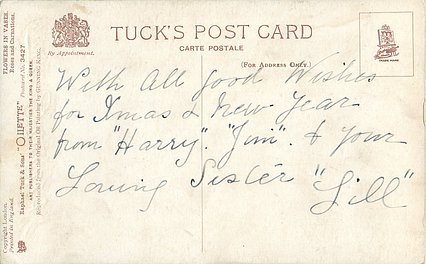 TUCK'S POST CARD
CARTE POSTALE
By Appointment.
(FOR ADDRESS ONLY.)
TRADE MARK
With All good Wishes
for Xmas & New Year
from "Harry". "Jim". & your
Loving Sister "Lill"
FLOWERS IN VASES.
Roses and Carnations.
Postcard No. 3427
Raphael Tuck & Sons' "OILETTE"
ART PUBLISHERS TO THEIR MAJESTIES THE KING & QUEEN.
Reproduced from the original Oil Painting by GUNNING KING.
Copyright London.
Printed in England.